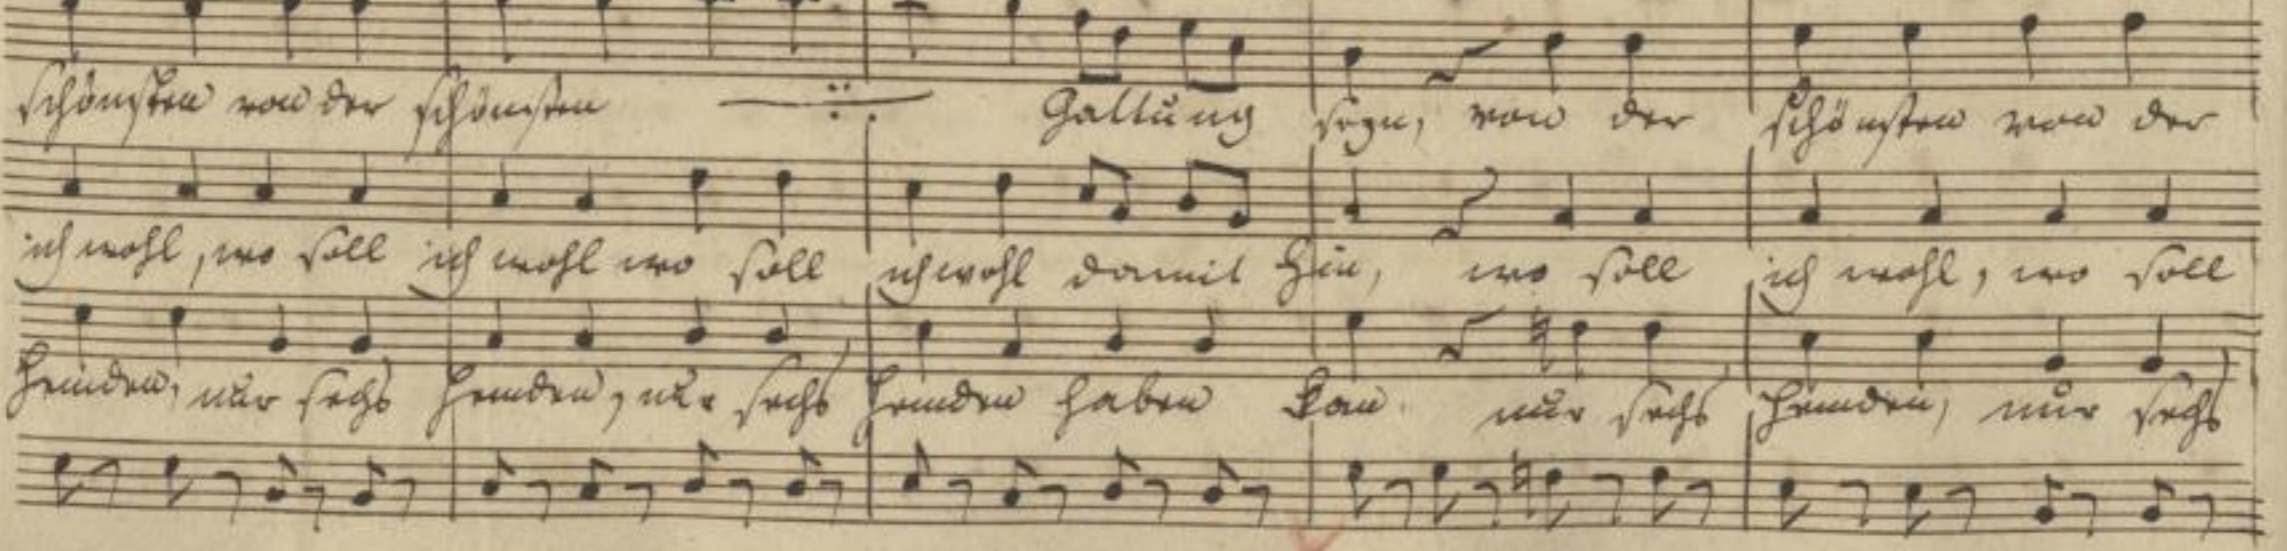 schönsten von der schönsten Gattung seyn, von der schönsten von der
ich wohl, wo soll ich wohl wo soll ich wohl damit hin, wo soll ich wohl, wo soll
Hemden, nur sechs Hemden, nur sechs Hemden haben kan nur sechs Hemden, nur sechs